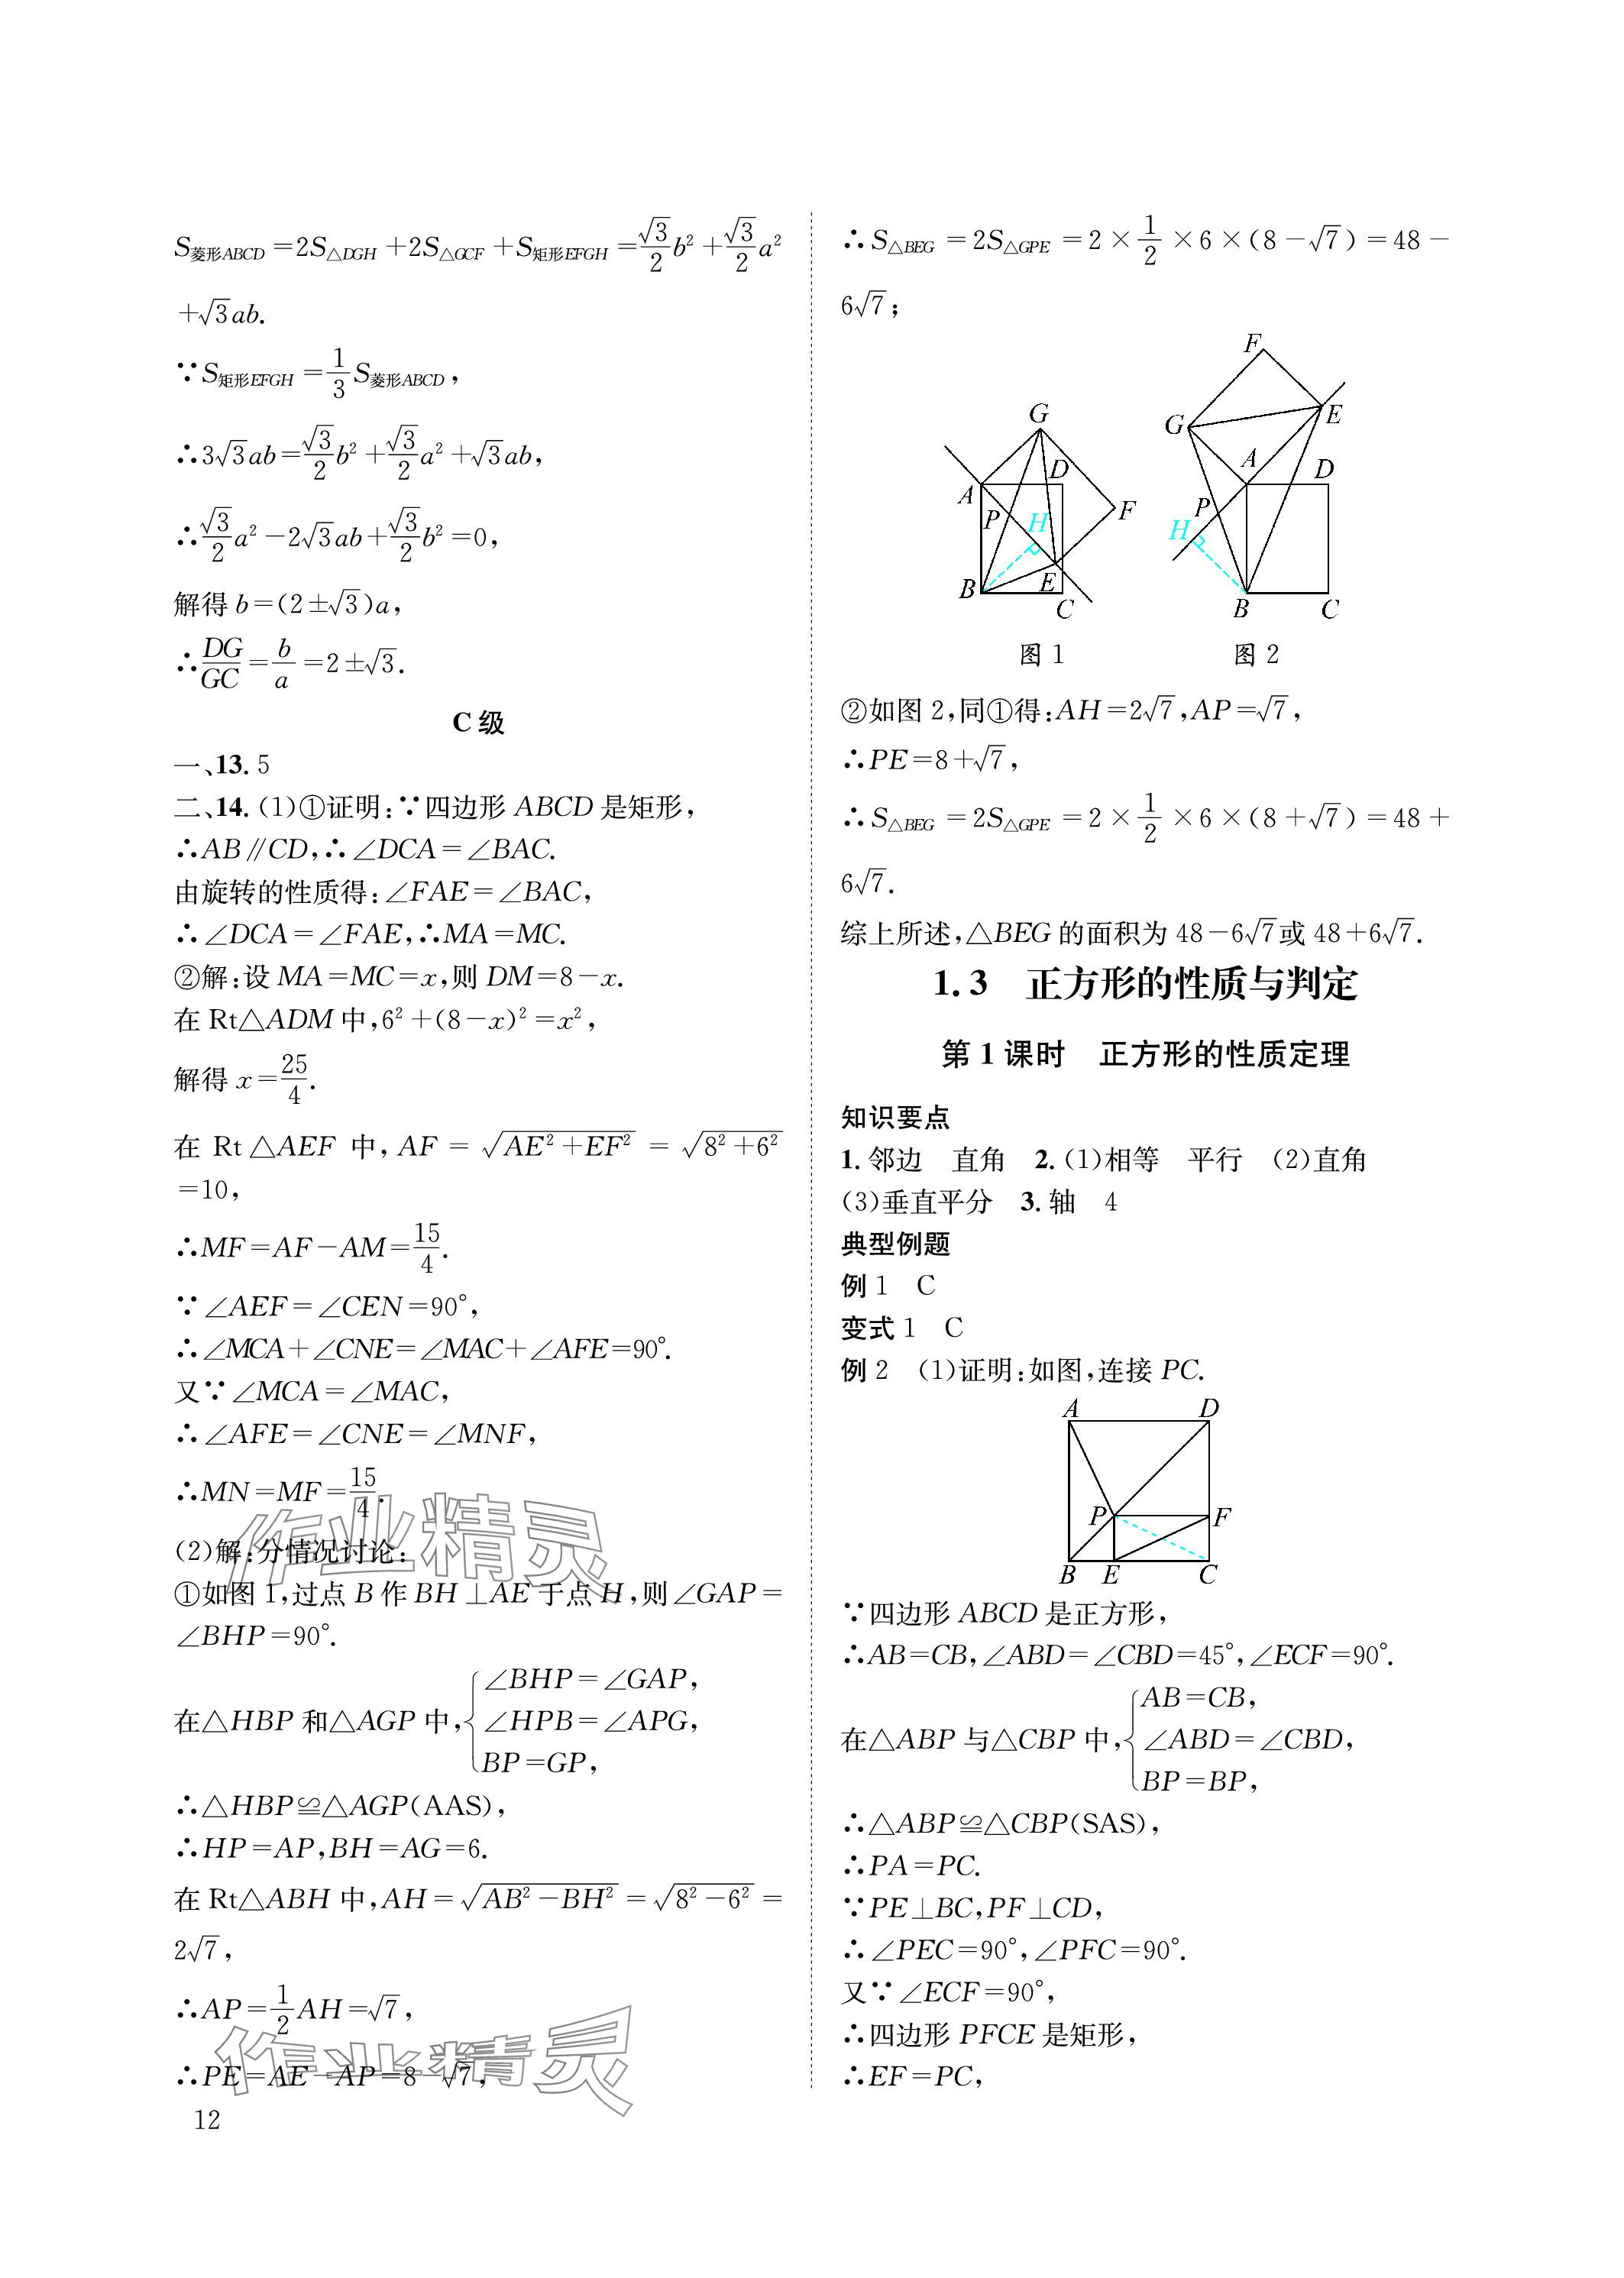 S菱形ABCD=2S△DGH+2S△GCF+S矩形EFGH=√3/2 b²+√3/2 a²
+√3ab.
∵S矩形EFGH=1/3 S菱形ABCD,
∴3√3ab=√3/2 b²+√3/2 a²+√3ab,
∴√3/2 a²-2√3ab+√3/2 b²=0,
解得 b=(2±√3)a,
∴DG/GC=b/a=2±√3.
C级
一、13. 5
二、14. (1)①证明:∵四边形 ABCD 是矩形,
∴AB∥CD,∴∠DCA=∠BAC.
由旋转的性质得:∠FAE=∠BAC,
∴∠DCA=∠FAE,∴MA=MC.
②解:设 MA=MC=x,则 DM=8-x.
在 Rt△ADM 中,6²+(8-x)²=x²,
解得 x=25/4.
在 Rt△AEF 中,AF=√(AE²+EF²)=√(8²+6²)
=10,
∴MF=AF-AM=15/4.
∵∠AEF=∠CEN=90°,
∴∠MCA+∠CNE=∠MAC+∠AFE=90°.
又∵∠MCA=∠MAC,
∴∠AFE=∠CNE=∠MNF,
∴MN=MF=15/4.
(2)解:分情况讨论:
①如图 1,过点 B 作 BH⊥AE 于点 H,则∠GAP=
∠BHP=90°.
在△HBP 和△AGP 中,{∠BHP=∠GAP,
∠HPB=∠APG,
BP=GP,
∴△HBP≌△AGP(AAS),
∴HP=AP,BH=AG=6.
在 Rt△ABH 中,AH=√(AB²-BH²)=√(8²-6²)=
2√7,
∴AP=1/2 AH=√7,
∴PE=AE-AP=8-√7,
12
作业精灵
作业精灵
∴S△BEG=2S△GPE=2×1/2×6×(8-√7)=48-
6√7;
G
A
D
P
H
F
B
E
C
图 1
F
G
E
A
D
P
H
B
C
图 2
②如图 2,同①得:AH=2√7,AP=√7,
∴PE=8+√7,
∴S△BEG=2S△GPE=2×1/2×6×(8+√7)=48+
6√7.
综上所述,△BEG 的面积为 48-6√7或 48+6√7.
1.3 正方形的性质与判定
第 1 课时 正方形的性质定理
知识要点
1. 邻边 直角 2. (1)相等 平行 (2)直角
(3)垂直平分 3. 轴 4
典型例题
例 1 C
变式 1 C
例 2 (1)证明:如图,连接 PC.
A
D
P
F
B
E
C
∵四边形 ABCD 是正方形,
∴AB=CB,∠ABD=∠CBD=45°,∠ECF=90°.
在△ABP 与△CBP 中,{AB=CB,
∠ABD=∠CBD,
BP=BP,
∴△ABP≌△CBP(SAS),
∴PA=PC.
∵PE⊥BC,PF⊥CD,
∴∠PEC=90°,∠PFC=90°.
又∵∠ECF=90°,
∴四边形 PFCE 是矩形,
∴EF=PC,